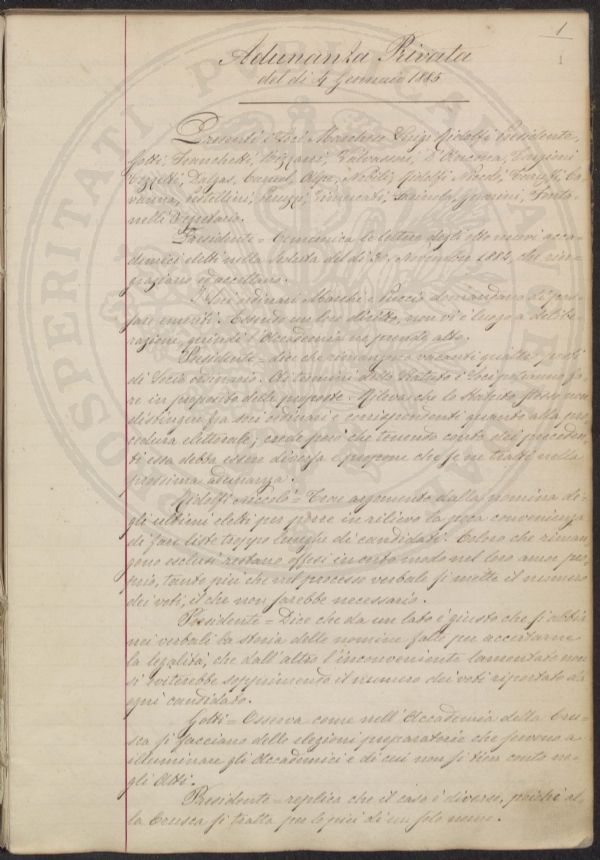 1
1
Adunanza Privata
del dì 4 Gennaio 1885
Presenti i Soci Marchese Luigi Ridolfi Presidente,
Gotti, Franchetti, Vald'Ancona, Targioni
Tozzetti, Dalgas, Caruel, Alpe, Nobili, Ridolfi Niccolò,
vanna, Pestellini, Guarini, Fonta-
nelli Segretario.
Presidente = Comunica le lettere degli otto nuovi acca-
demici eletti nella Seduta del dì 30 Novembre 1884, che rin-
graziano ed accettano.
I Soci ordinari e Puccio domandano di pas-
sare emeriti. Essendo un loro diritto, non vi è luogo a delibe-
razione, quindi l'Accademia ne prende atto.
Presidente = dice che rimangono vacanti quattro posti
di Socio ordinario. Ai termini dello Statuto i Soci potranno fa-
re in proposito delle proposte. Rileva che lo Statuto stesso non
distingue fra soci ordinari e corrispondenti quanto alla pro-
cedura elettorale; crede però che tenendo conto dei preceden-
ti essa debba essere diversa e propone che se ne tratti nella
prossima adunanza.
Ridolfi Niccolò = Trae argomento dalla nomina de-
gli ultimi eletti per porre in rilievo la poca convenienza
di fare liste troppo lunghe di candidati. Coloro che riman-
gono esclusi restano offesi in certo modo nel loro amor pro-
prio, tanto più che nel processo verbale si mette il numero
dei voti, il che non sarebbe necessario.
Presidente = Dice che da un lato è giusto che si abbia
nei verbali la storia delle nomine fatte per accertarne
la legalità, che dall'altro l'inconveniente lamentato non
si eviterebbe sopprimendo il numero dei voti riportato da
ogni candidato.
Gotti = Osserva come nell'Accademia della Cru-
sca si facciano delle elezioni preparatorie che servono a
illuminare gli Accademici e di cui non si tien conto ne-
gli Atti.
Presidente = replica che il caso è diverso, poichè al-
la Crusca si tratta per lo più di un solo nome.
PROSPERITATI PUBLICAE AUGENDAE